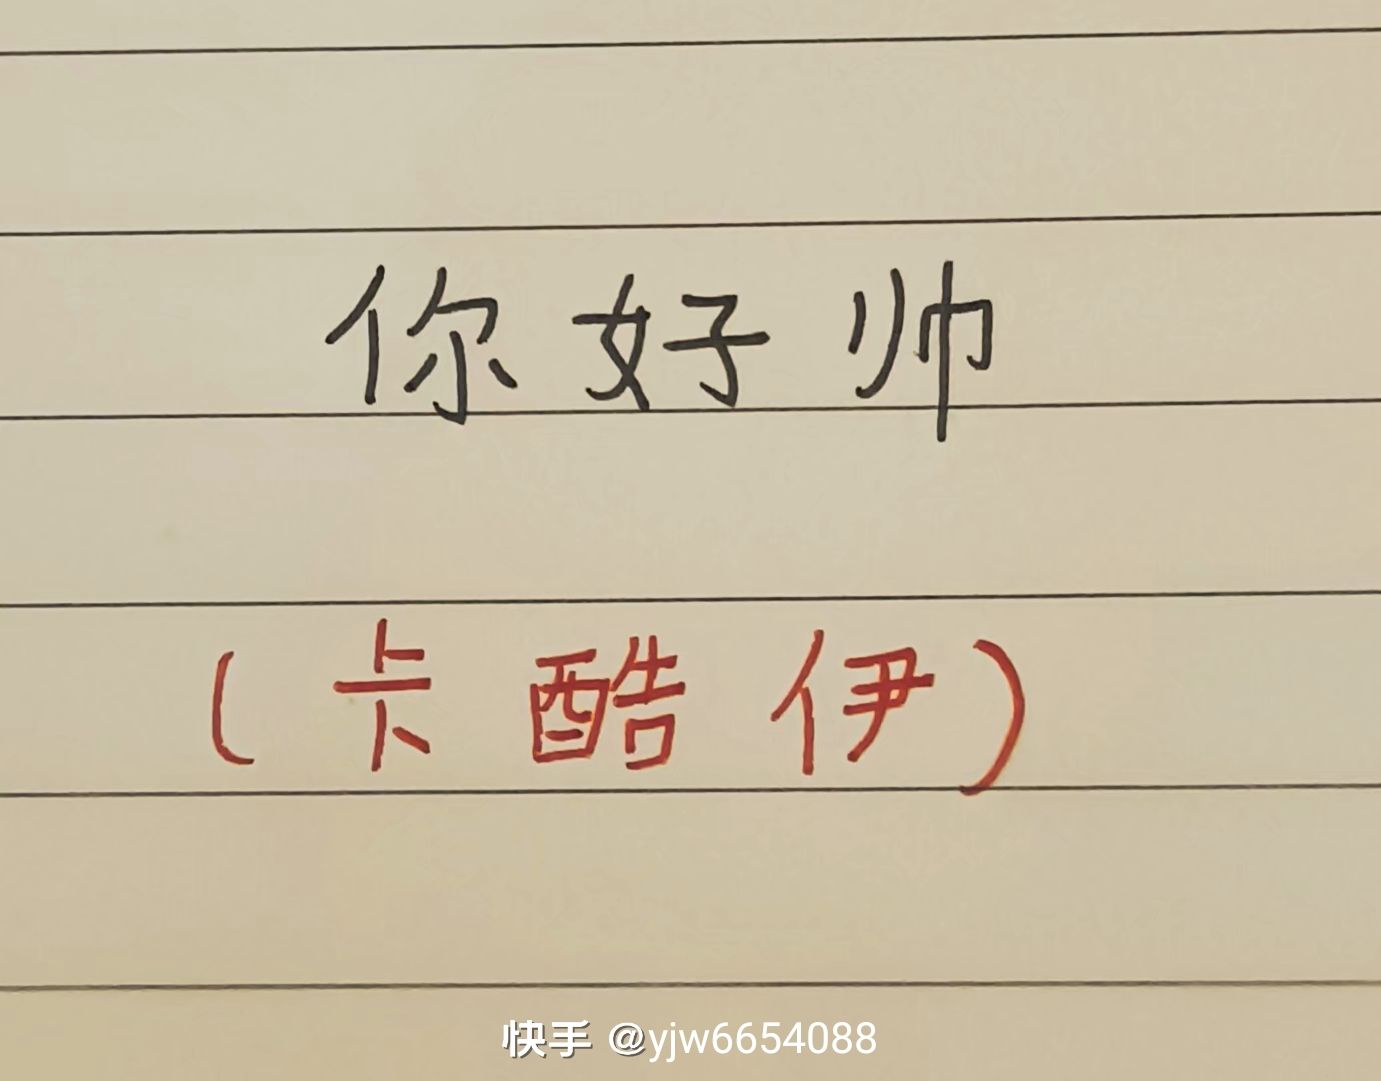 你好帅
(卡酷伊)
快手 @yjw6654088